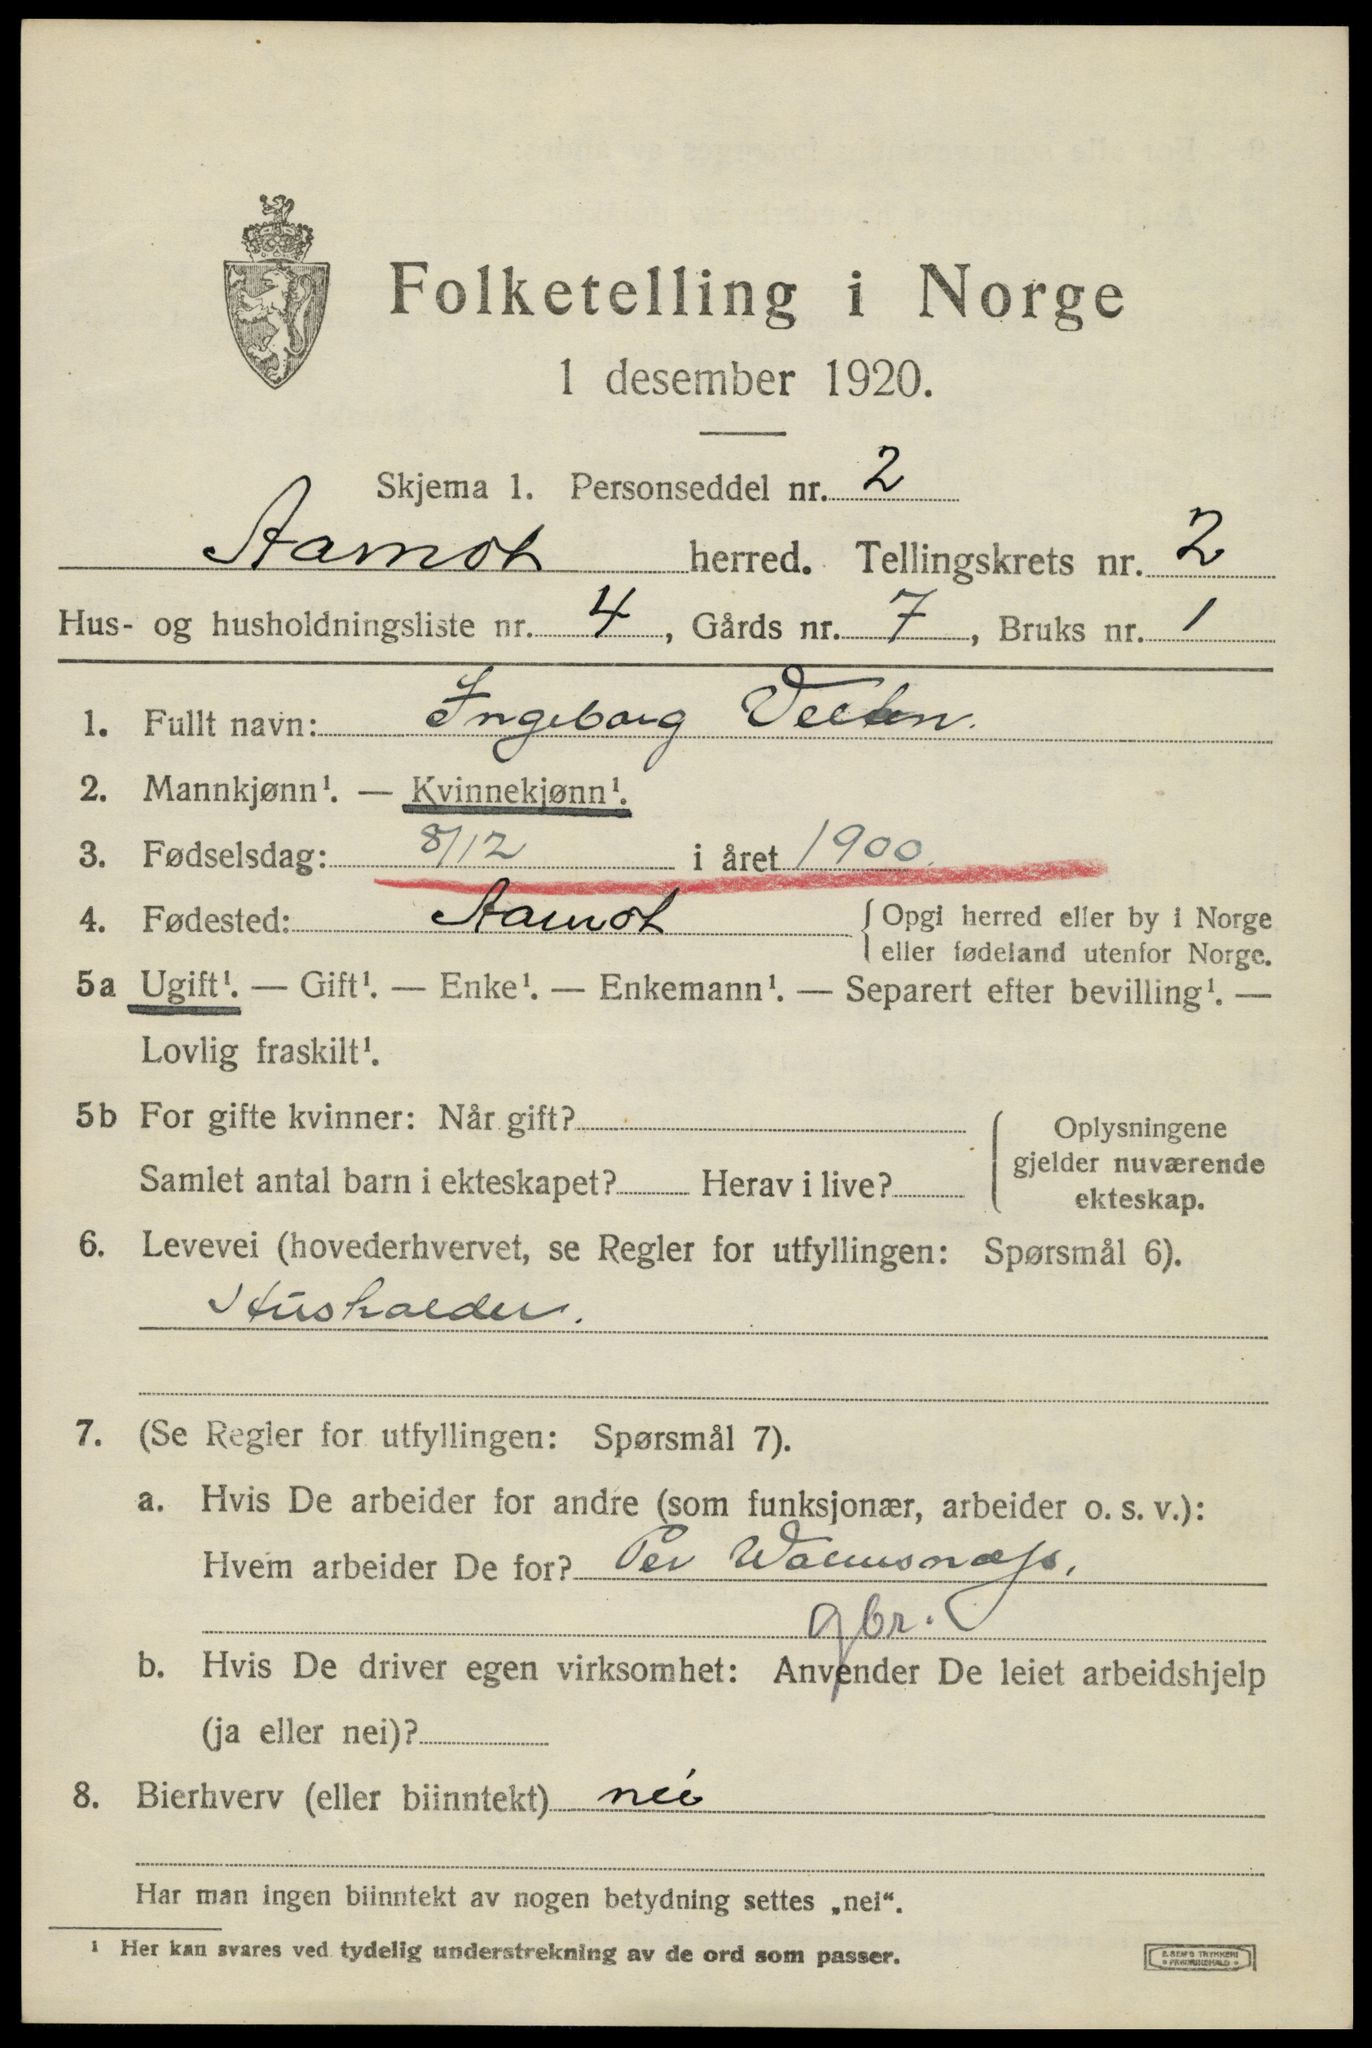 Folketelling i Norge
1 desember 1920.
Skjema 1. Personseddel nr. 2
Aamot herred. Tellingskrets nr. 2
Hus- og husholdningsliste nr. 4, Gårds nr. 7, Bruks nr. 1
1. Fullt navn: Ingeborg
2. Mannkjønn¹. — Kvinnekjønn¹.
3. Fødselsdag: 8/12 i året 1900.
4. Fødested: Aamot { Opgi herred eller by i Norge
eller fødeland utenfor Norge.
5a Ugift¹. — Gift¹. — Enke¹. — Enkemann¹. — Separert efter bevilling¹. —
Lovlig fraskilt¹.
5b For gifte kvinner: Når gift?
Samlet antal barn i ekteskapet? Herav i live?
Oplysningene
gjelder nuværende
ekteskap.
6. Levevei (hovederhvervet, se Regler for utfyllingen: Spørsmål 6).
Husholder.
7. (Se Regler for utfyllingen: Spørsmål 7).
a. Hvis De arbeider for andre (som funksjonær, arbeider o. s. v.):
Hvem arbeider De for? Per
gbr.
b. Hvis De driver egen virksomhet: Anvender De leiet arbeidshjelp
(ja eller nei)?
8. Bierhverv (eller biinntekt) nei
Har man ingen biinntekt av nogen betydning settes „nei“.
¹ Her kan svares ved tydelig understrekning av de ord som passer.